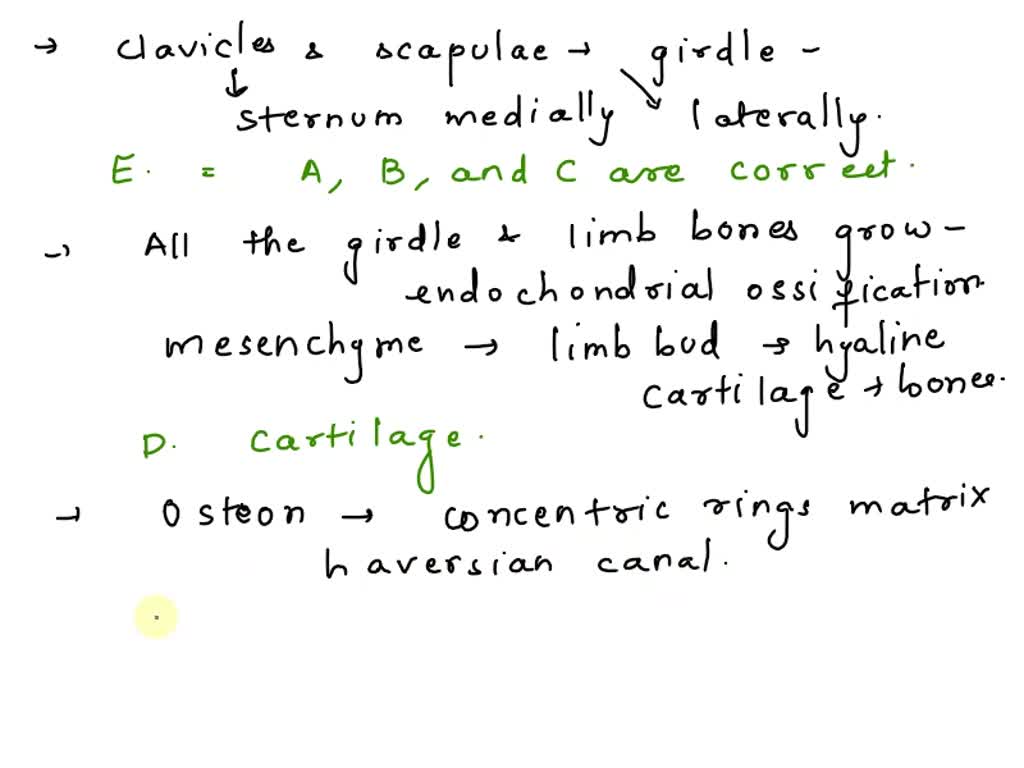 → clavicles & scapulae → girdle -
sternum medially laterally.
E. = A, B, and C are correct.
→ All the girdle & limb bones grow -
endochondrial ossification
mesenchyme → limb bud → hyaline
cartilage → bones.
D. cartilage.
→ Osteon → concentric rings matrix
haversian canal.